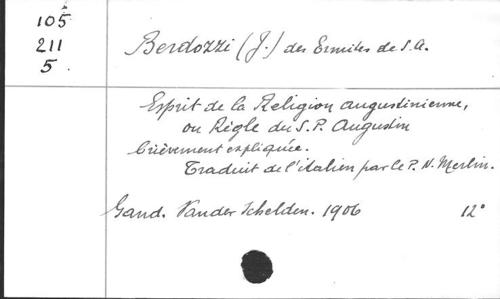 105
211
5.
Berdozzi (J.) des Ermites de S.A.
Esprit de la Religion augustinienne,
ou Règle du S.P. Augustin
brièvement expliquée.
Traduit de l'italien par le P. N. Merlin.
Gand. Vander Schelden. 1906 12°